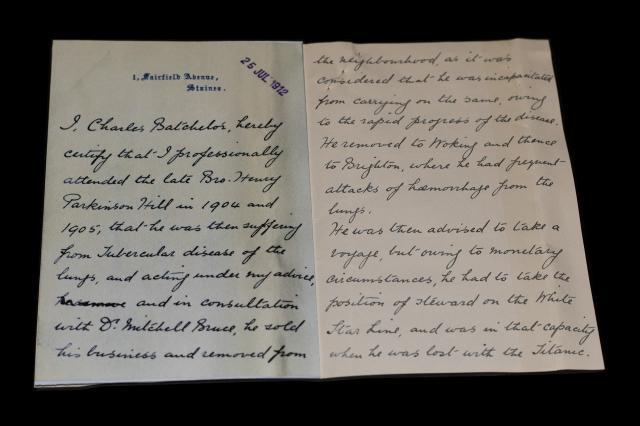 1, Fairfield Avenue,
Staines.
25 JUL 1912
I, Charles Batchelor, hereby
certify that I professionally
attended the late Bro. Henry
Parkinson Hill in 1904 and
1905, that he was then suffering
from Tubercular disease of the
lungs, and acting under my advice,
and in consultation
with Dr Mitchell Bruce, he sold
his business and removed from
the neighbourhood, as it was
considered that he was incapacitated
from carrying on the same, owing
to the rapid progress of the disease.
He removed to Woking and thence
to Brighton, where he had frequent
attacks of hæmorrhage from the
lungs.
He was then advised to take a
voyage, but owing to monetary
circumstances, he had to take the
position of steward on the White
Star Line, and was in that capacity
when he was lost with the Titanic.